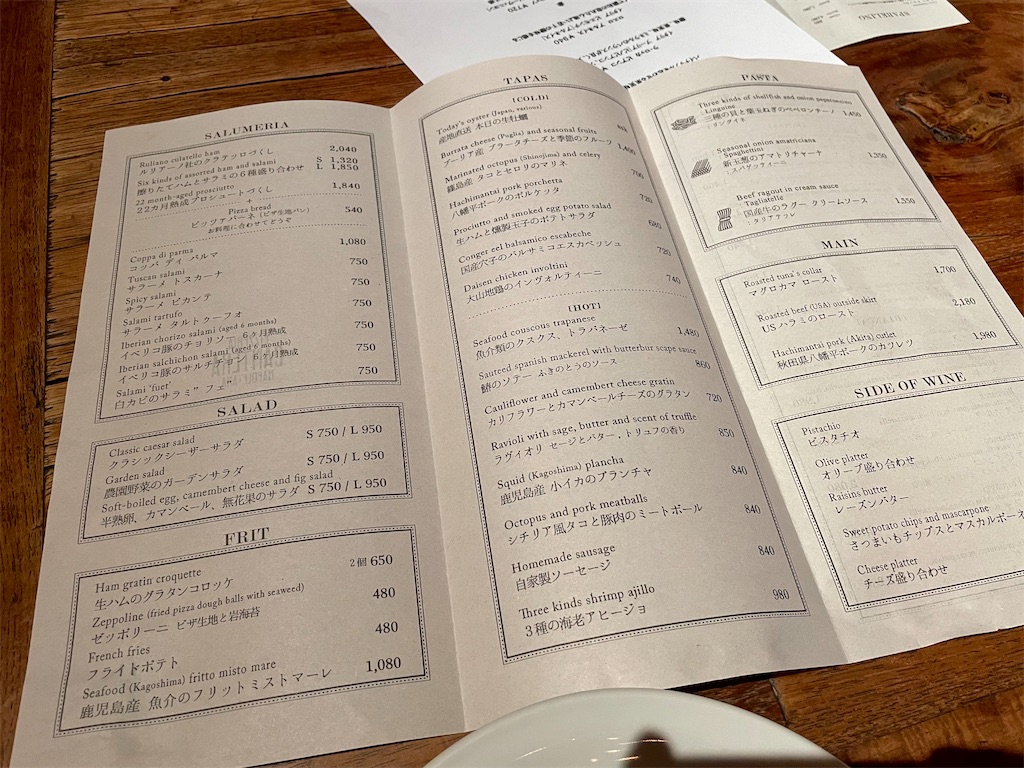 SALUMERIA
Ruliano culatelle ham 2,040
ルリアーノ社のクラテッロづくし
Six kinds of assorted ham and salami S 1,320
贈りたてハムとサラミの6種盛り合わせ L 1,850
22 month-aged prosciutto 1,840
22カ月熟成プロシュートづくし
+
Pizza bread 540
ピッツァパーネ (ピザ生地パン)
お料理に合わせてどうぞ
Coppa di parma 1,080
コッパ ディ パルマ
Tuscan salami 750
サラーメ トスカーナ
Spicy salami 750
サラーメ ピカンテ
Salami tartufo 750
サラーメ タルトゥーフォ
Iberian chorizo salami (aged 6 months) 750
イベリコ豚のチョリソー 6ヶ月熟成
Iberian salchichon salami (aged 6 months) 750
イベリコ豚のサルチチョン 6ヶ月熟成
Salami 'fuet' 750
白カビのサラミ" フェ"
SALAD
Classic caesar salad S 750 / L 950
クラシックシーザーサラダ
Garden salad S 750 / L 950
農園野菜のガーデンサラダ
Soft-boiled egg, camembert cheese and fig salad
半熟卵、カマンベール、無花果のサラダ S 750 / L 950
FRIT
Ham gratin croquette 2個 650
生ハムのグラタンコロッケ
Zeppoline (fried pizza dough balls with seaweed) 480
ゼッポリーニ ピザ生地と岩海苔
French fries 480
フライドポテト
Seafood (Kagoshima) fritto misto mare 1,080
鹿児島産 魚介のフリットミストマーレ
TAPAS
[COLD]
Today's oyster (Japan, various)
産地直送 本日の生牡蠣
Burrata cheese (Puglia) and seasonal fruits
プーリア産 ブラータチーズと季節のフルーツ 1,400
Marinated octopus (Shinojima) and celery
篠島産 タコとセロリのマリネ 760
Hachimantai pork porchetta
八幡平ポークのポルケッタ 720
Prociutto and smoked egg potato salad
生ハムと燻製玉子のポテトサラダ 680
Conger eel balsamico escabeche
国産穴子のバルサミコエスカベッシュ 720
Daisen chicken involtini
大山地鶏のインヴォルティーニ 740
[HOT]
Seafood couscous trapanese
魚介類のクスクス、トラパネーゼ 1,480
Sauteed spanish mackerel with butterbur scape sauce
鰆のソテー ふきのとうのソース 860
Cauliflower and camembert cheese gratin
カリフラワーとカマンベールチーズのグラタン 720
Ravioli with sage, butter and scent of truffle
ラヴィオリ セージとバター、トリュフの香り 850
Squid (Kagoshima) plancha
鹿児島産 小イカのプランチャ 840
Octopus and pork meatballs
シチリア風タコと豚肉のミートボール 840
Homemade sausage
自家製ソーセージ 840
Three kinds shrimp ajillo
3種の海老アヒージョ 980
PASTA
Three kinds of shellfish and onion peperoncino
Linguine
三種の貝と葉玉ねぎのペペロンチーノ 1,450
: リングイネ
Seasonal onion amatriciana
Spaghettini
新玉葱のアマトリチャーナ 1,350
: スパゲッティーニ
Beef ragout in cream sauce
Tagliatelle
国産牛のラグー クリームソース 1,550
: タリアテッレ
MAIN
Roasted tuna's collar
マグロカマ ロースト 1,700
Roasted beef (USA) outside skirt
US ハラミのロースト 2,180
Hachimantai pork (Akita) cutlet
秋田県八幡平ポークのカツレツ 1,980
SIDE OF WINE
Pistachio
ピスタチオ
Olive platter
オリーブ盛り合わせ
Raisins butter
レーズンバター
Sweet potato chips and mascarpone
さつまいもチップスとマスカルポーネ
Cheese platter
チーズ盛り合わせ
SPARKLING